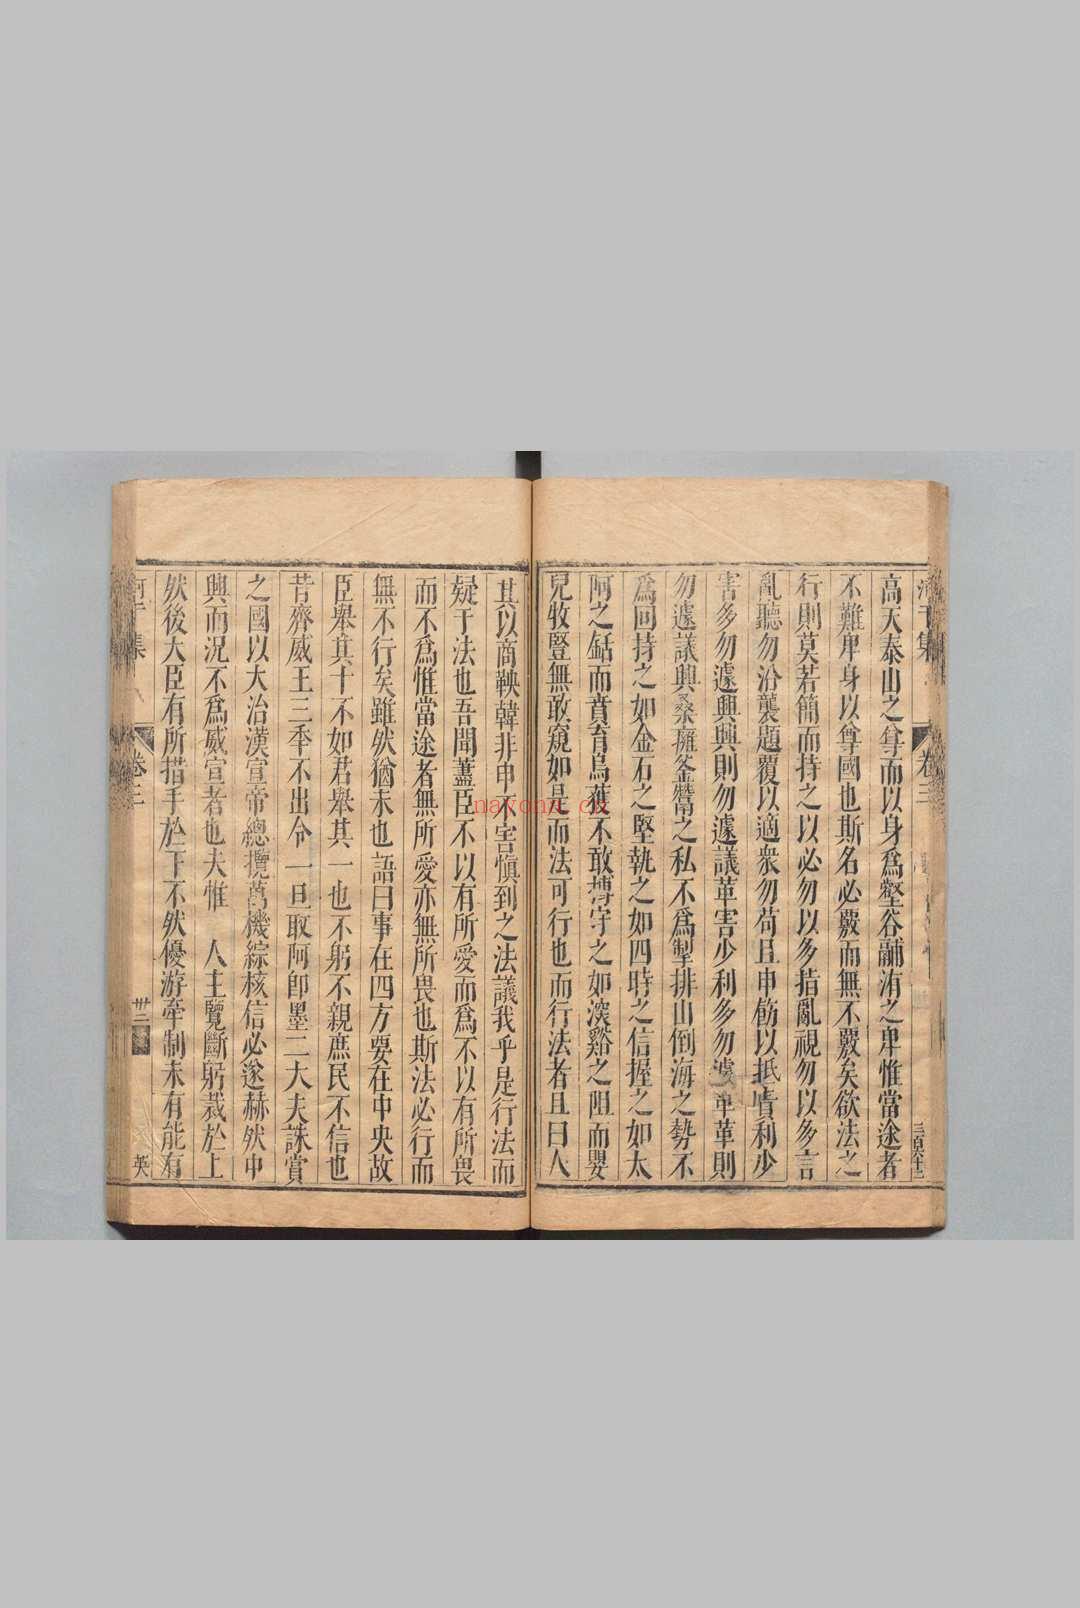 高天泰山之尊而以身爲壑谷鬴洧之卑惟當途者
不難卑身以尊國也斯名必覈而無不覈矣欲法之
行則莫若簡而持之以必勿以多指亂視勿以多言
亂聽勿沿襲題覆以適衆勿苟且申飭以抵責利少
害多勿遽興興則勿遽議革害少利多勿遽革革則
勿遽議興桑雍釜鬵之私不爲掣排山倒海之勢不
爲回持之如金石之堅執之如四時之信握之如太
阿之銛而賁育烏獲不敢搏守之如深谿之阻而嬰
兒牧豎無敢窺如是而法可行也而行法者且曰人
其以商鞅韓非申不害愼到之法議我乎是行法而
疑于法也吾聞藎臣不以有所愛而爲不以有所畏
而不爲惟當途者無所愛亦無所畏也斯法必行而
無不行矣雖然猶未也語曰事在四方要在中央故
臣舉其十不如君舉其一也不躬不親庶民不信也
昔齊威王三季不出令一旦取阿卽墨二大夫誅賞
之國以大治漢宣帝總攬萬機綜核信必遂赫然中
興而況不爲威宣者也夫惟 人主覽斷躬裁於上
然後大臣有所措手於下不然優游牽制未有能有
集
卷三
三百六十二
集
卷三
卅二
英
nayona.cn